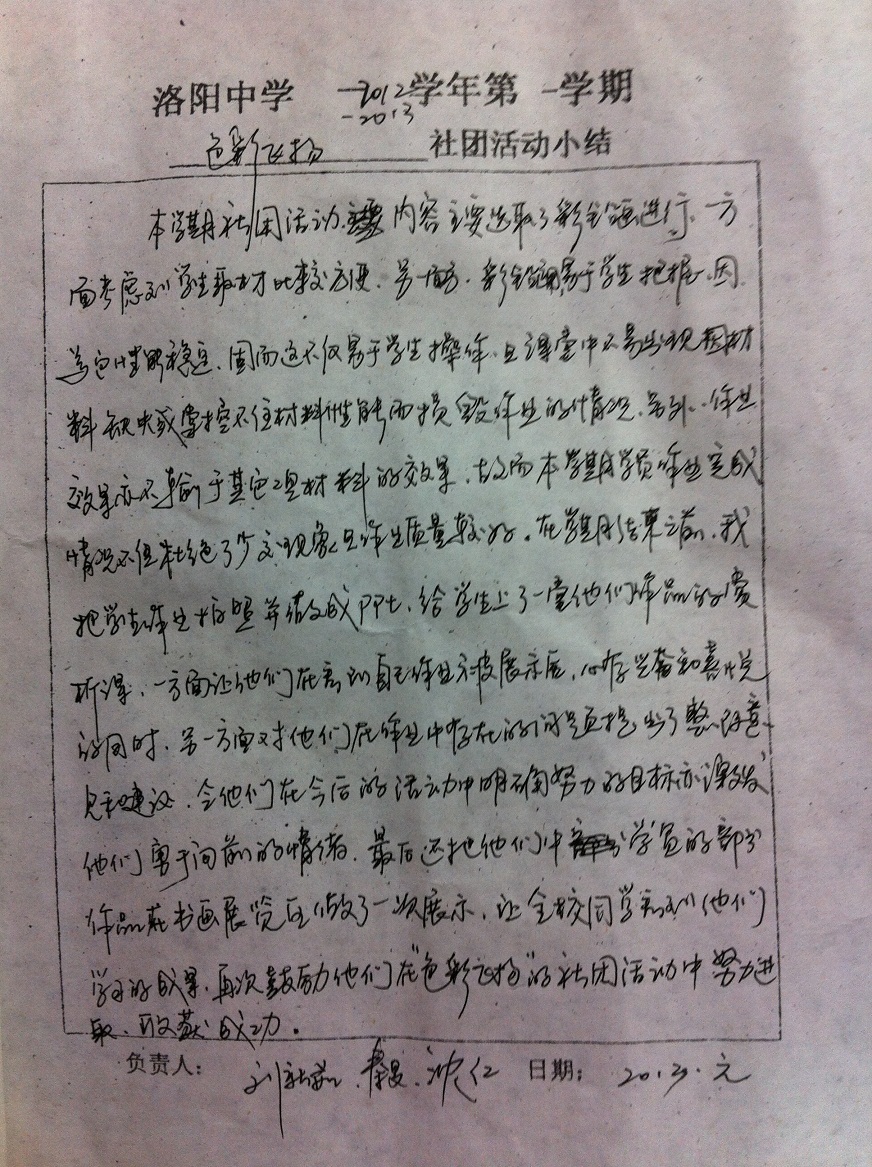 洛阳中学 2012-2013学年第一学期
色彩飞扬 社团活动小结
本学期社团活动内容主要选取了彩铅画进行,一方
面考虑到学生取材比较方便,另一方面,彩铅画易于学生把握,因
为它性能稳定,因而这不仅易于学生操作,且课堂中不易出现因材
料缺失或掌控不住材料性能而损毁作业的情况,另外,作业
效果亦不输于其它工具材料的效果,故而本学期学员作业完成
情况不但杜绝了少交现象且作业质量较好。在学期结束之前,我
把学生作业拍照并做成PPt,给学生上了一堂他们作品的赏
析课,一方面让他们在看到自己作业被展示后,心存兴奋和喜悦
的同时,另一方面对他们在作业中存在的问题提出了整改意
见和建议,令他们在今后的活动中明确努力的目标亦激发
他们勇于向前的情绪,最后还把他们中学员的部分
作品在书画展览区做了一次展示,让全校同学看到他们
学习的成果,再次鼓励他们在"色彩飞扬"的社团活动中努力进
取,收获成功。
负责人: 日期: 2013.元